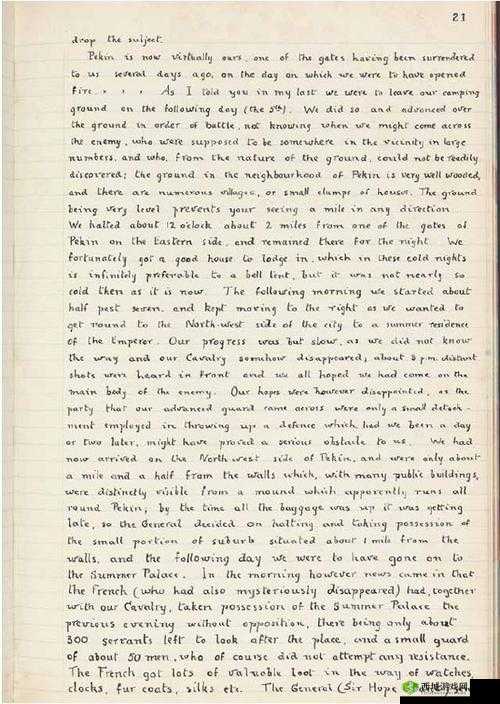 21
drop the subject.
Pekin is now virtually ours, one of the gates having been surrendered
to us several days ago, on the day on which we were to have opened
fire. . . . As I told you in my last we were to leave our camping
ground on the following day (the 5th). We did so and advanced over
the ground in order of battle, not knowing when we might come across
the enemy, who were supposed to be somewhere in the vicinity in large
numbers, and who, from the nature of the ground, could not be readily
discovered; the ground in the neighbourhood of Pekin is very well wooded,
and there are numerous villages, or small clumps of houses. The ground
being very level prevents your seeing a mile in any direction.
We halted about 12 o'clock about 2 miles from one of the gates of
Pekin on the Eastern side, and remained there for the night. We
fortunately got a good house to lodge in, which in these cold nights
is infinitely preferable to a bell tent, but it was not nearly so
cold then as it is now. The following morning we started about
half past seven, and kept moving to the right as we wanted to
get round to the North-West side of the city to a summer residence
of the Emperor. Our progress was but slow, as we did not know
the way and our Cavalry somehow disappeared; about 3 p.m. distant
shots were heard in front and we all hoped we had come on the
main body of the enemy. Our hopes were however disappointed, as the
party that our advanced guard came across were only a small detach-
ment employed in throwing up a defence which had we been a day
or two later, might have proved a serious obstacle to us. We had
now arrived on the North west side of Pekin, and were only about
a mile and a half from the walls which, with many public buildings,
were distinctly visible from a mound which apparently runs all
round Pekin; by the time all the baggage was up it was getting
late, so the General decided on halting and taking possession of
the small portion of suburb situated about 1 mile from the
walls, and the following day we were to have gone on to
the Summer Palace. In the morning however news came in that
the French (who had also mysteriously disappeared) had, together
with our Cavalry, taken possession of the Summer Palace the
previous evening without opposition, there being only about
300 servants left to look after the place, and a small guard
of about 50 men, who of course did not attempt any resistance.
The French got lots of valuable loot in the way of watches,
clocks, fur coats, silks etc. The General (Sir Hope
西城游戏网